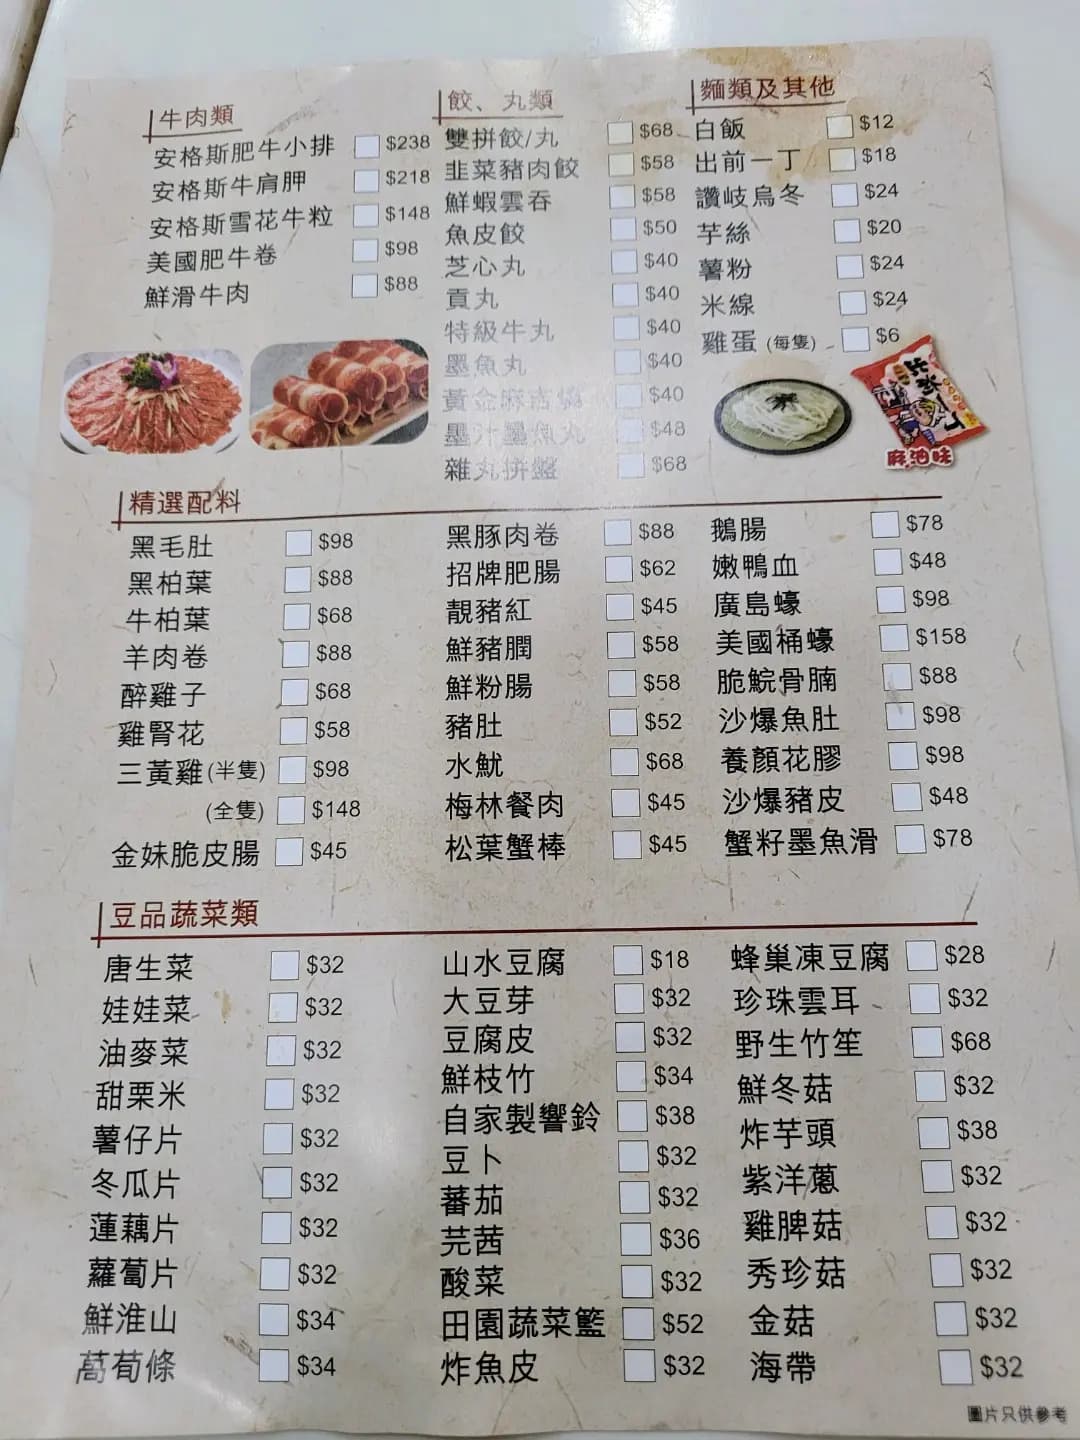 牛肉類
安格斯肥牛小排 $238
安格斯牛肩胛 $218
安格斯雪花牛粒 $148
美國肥牛卷 $98
鮮滑牛肉 $88
餃、丸類
雙拼餃/丸 $68
韭菜豬肉餃 $58
鮮蝦雲吞 $58
魚皮餃 $50
芝心丸 $40
貢丸 $40
特級牛丸 $40
墨魚丸 $40
黃金麻吉燒 $40
墨汁墨魚丸 $48
雜丸拼盤 $68
麵類及其他
白飯 $12
出前一丁 $18
讚岐烏冬 $24
芋絲 $20
薯粉 $24
米線 $24
雞蛋 (每隻) $6
出前一丁
麻油味
精選配料
黑毛肚 $98
黑柏葉 $88
牛柏葉 $68
羊肉卷 $88
醉雞子 $68
雞腎花 $58
三黃雞 (半隻) $98
(全隻) $148
金妹脆皮腸 $45
黑豚肉卷 $88
招牌肥腸 $62
靚豬紅 $45
鮮豬膶 $58
鮮粉腸 $58
豬肚 $52
水魷 $68
梅林餐肉 $45
松葉蟹棒 $45
鵝腸 $78
嫩鴨血 $48
廣島蠔 $98
美國桶蠔 $158
脆鯇骨腩 $88
沙爆魚肚 $98
養顏花膠 $98
沙爆豬皮 $48
蟹籽墨魚滑 $78
豆品蔬菜類
唐生菜 $32
娃娃菜 $32
油麥菜 $32
甜栗米 $32
薯仔片 $32
冬瓜片 $32
蓮藕片 $32
蘿蔔片 $32
鮮淮山 $34
萵荀條 $34
山水豆腐 $18
大豆芽 $32
豆腐皮 $32
鮮枝竹 $34
自家製響鈴 $38
豆卜 $32
蕃茄 $32
芫茜 $36
酸菜 $32
田園蔬菜籃 $52
炸魚皮 $32
蜂巢凍豆腐 $28
珍珠雲耳 $32
野生竹笙 $68
鮮冬菇 $32
炸芋頭 $38
紫洋蔥 $32
雞脾菇 $32
秀珍菇 $32
金菇 $32
海帶 $32
圖片只供參考